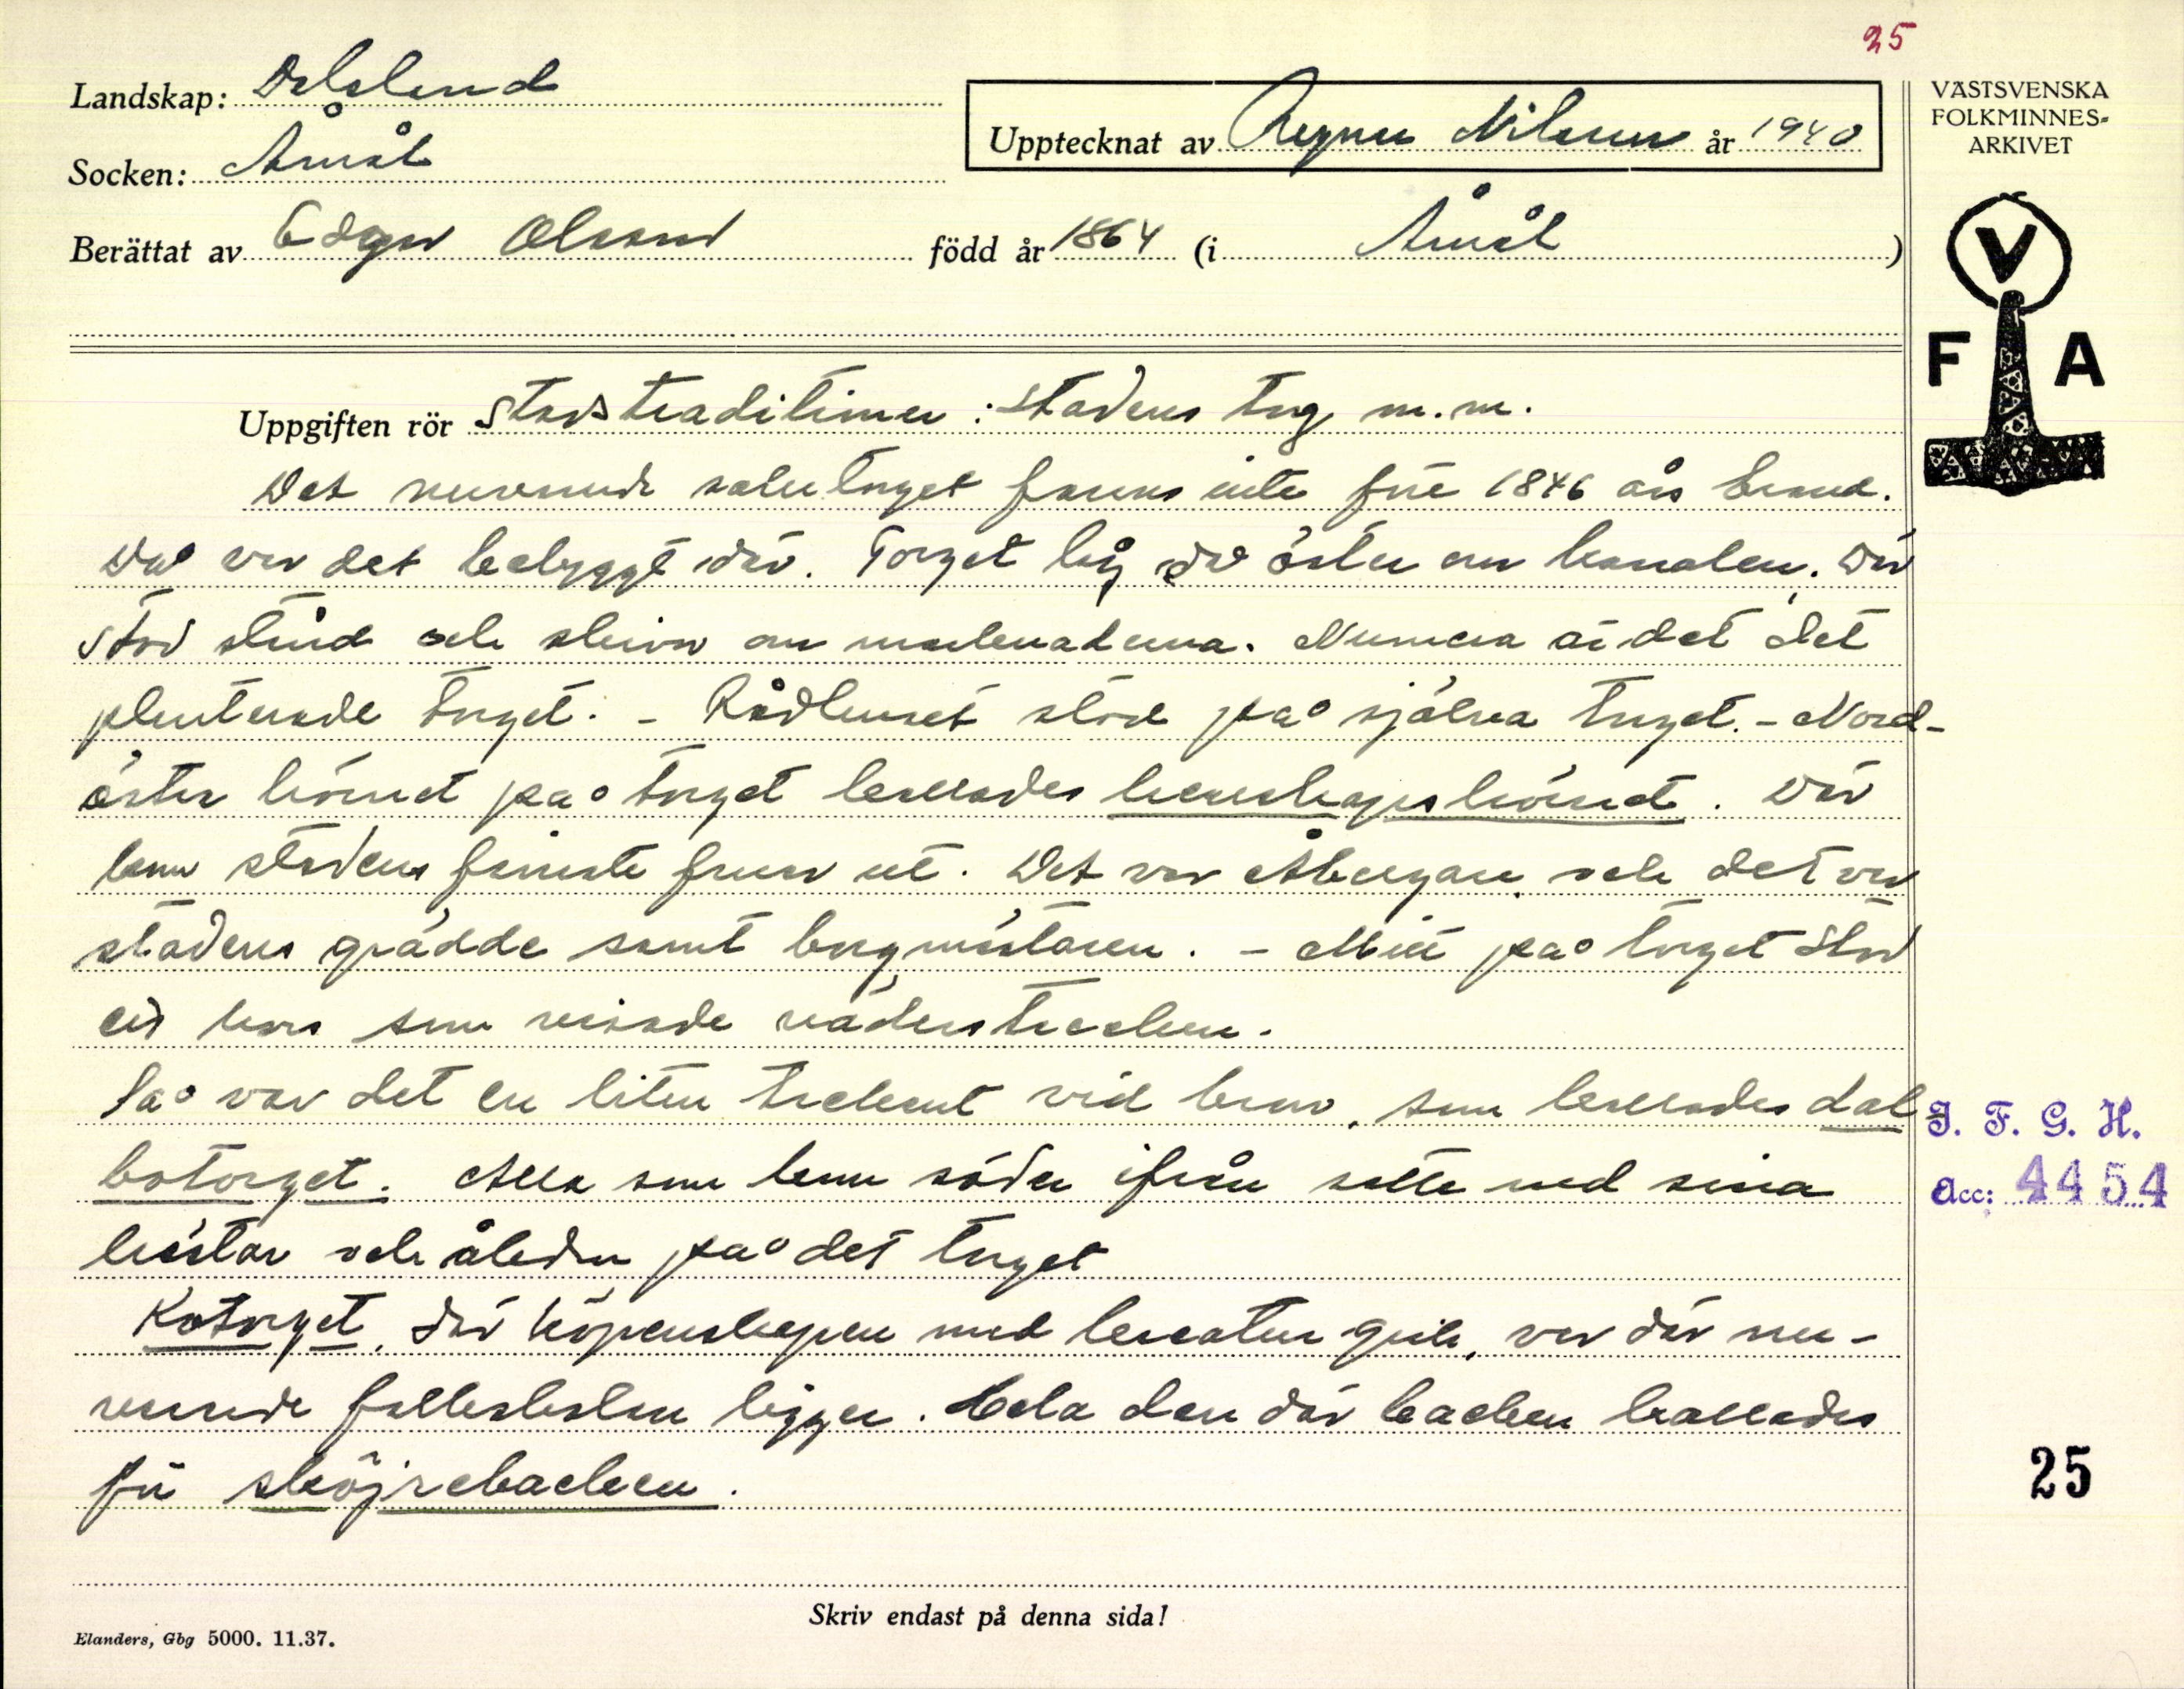 25
Landskap: Dalsland
Socken: Åmål
Upptecknat av Ragnar Nilsson år 1940
Berättat av Edgar Olsson född år 1864 (i Åmål)
VÄSTSVENSKA
FOLKMINNES-
ARKIVET
V
F A
Uppgiften rör Stadstraditioner: Stadens torg m.m.
Det nuvarande salutorget fanns inte före 1846 års brand.
Då var det bebyggt där. Torget låg då öster om kanalen. Där
stod stånd och skivor om marknaderna. Numera är det det
planterade torget. - Rådhuset stod på själva torget. - Nord-
öster hörnet på torget kallades herrskapshörnet. Där
kom stadens finaste fruar ut. Det var Åbergare och det var
stadens grädde samt borgmästaren. - Mitt på torget stod
ett kors som visade väderstrecken.
Så var det en liten trekant vid bron, som kallades dal
botorget. Alla som kom söder ifrån satte ned sina
hästar och åkdon på det torget
Kotorget, där köpenskapen med kreatur gick, var där nu-
varande folkskolan ligger. Hela den där backen kallades
för sköjrebacken.
I. F. G. H.
Acc: 4454
25
Skriv endast på denna sida!
Elanders, Gbg 5000. 11.37.